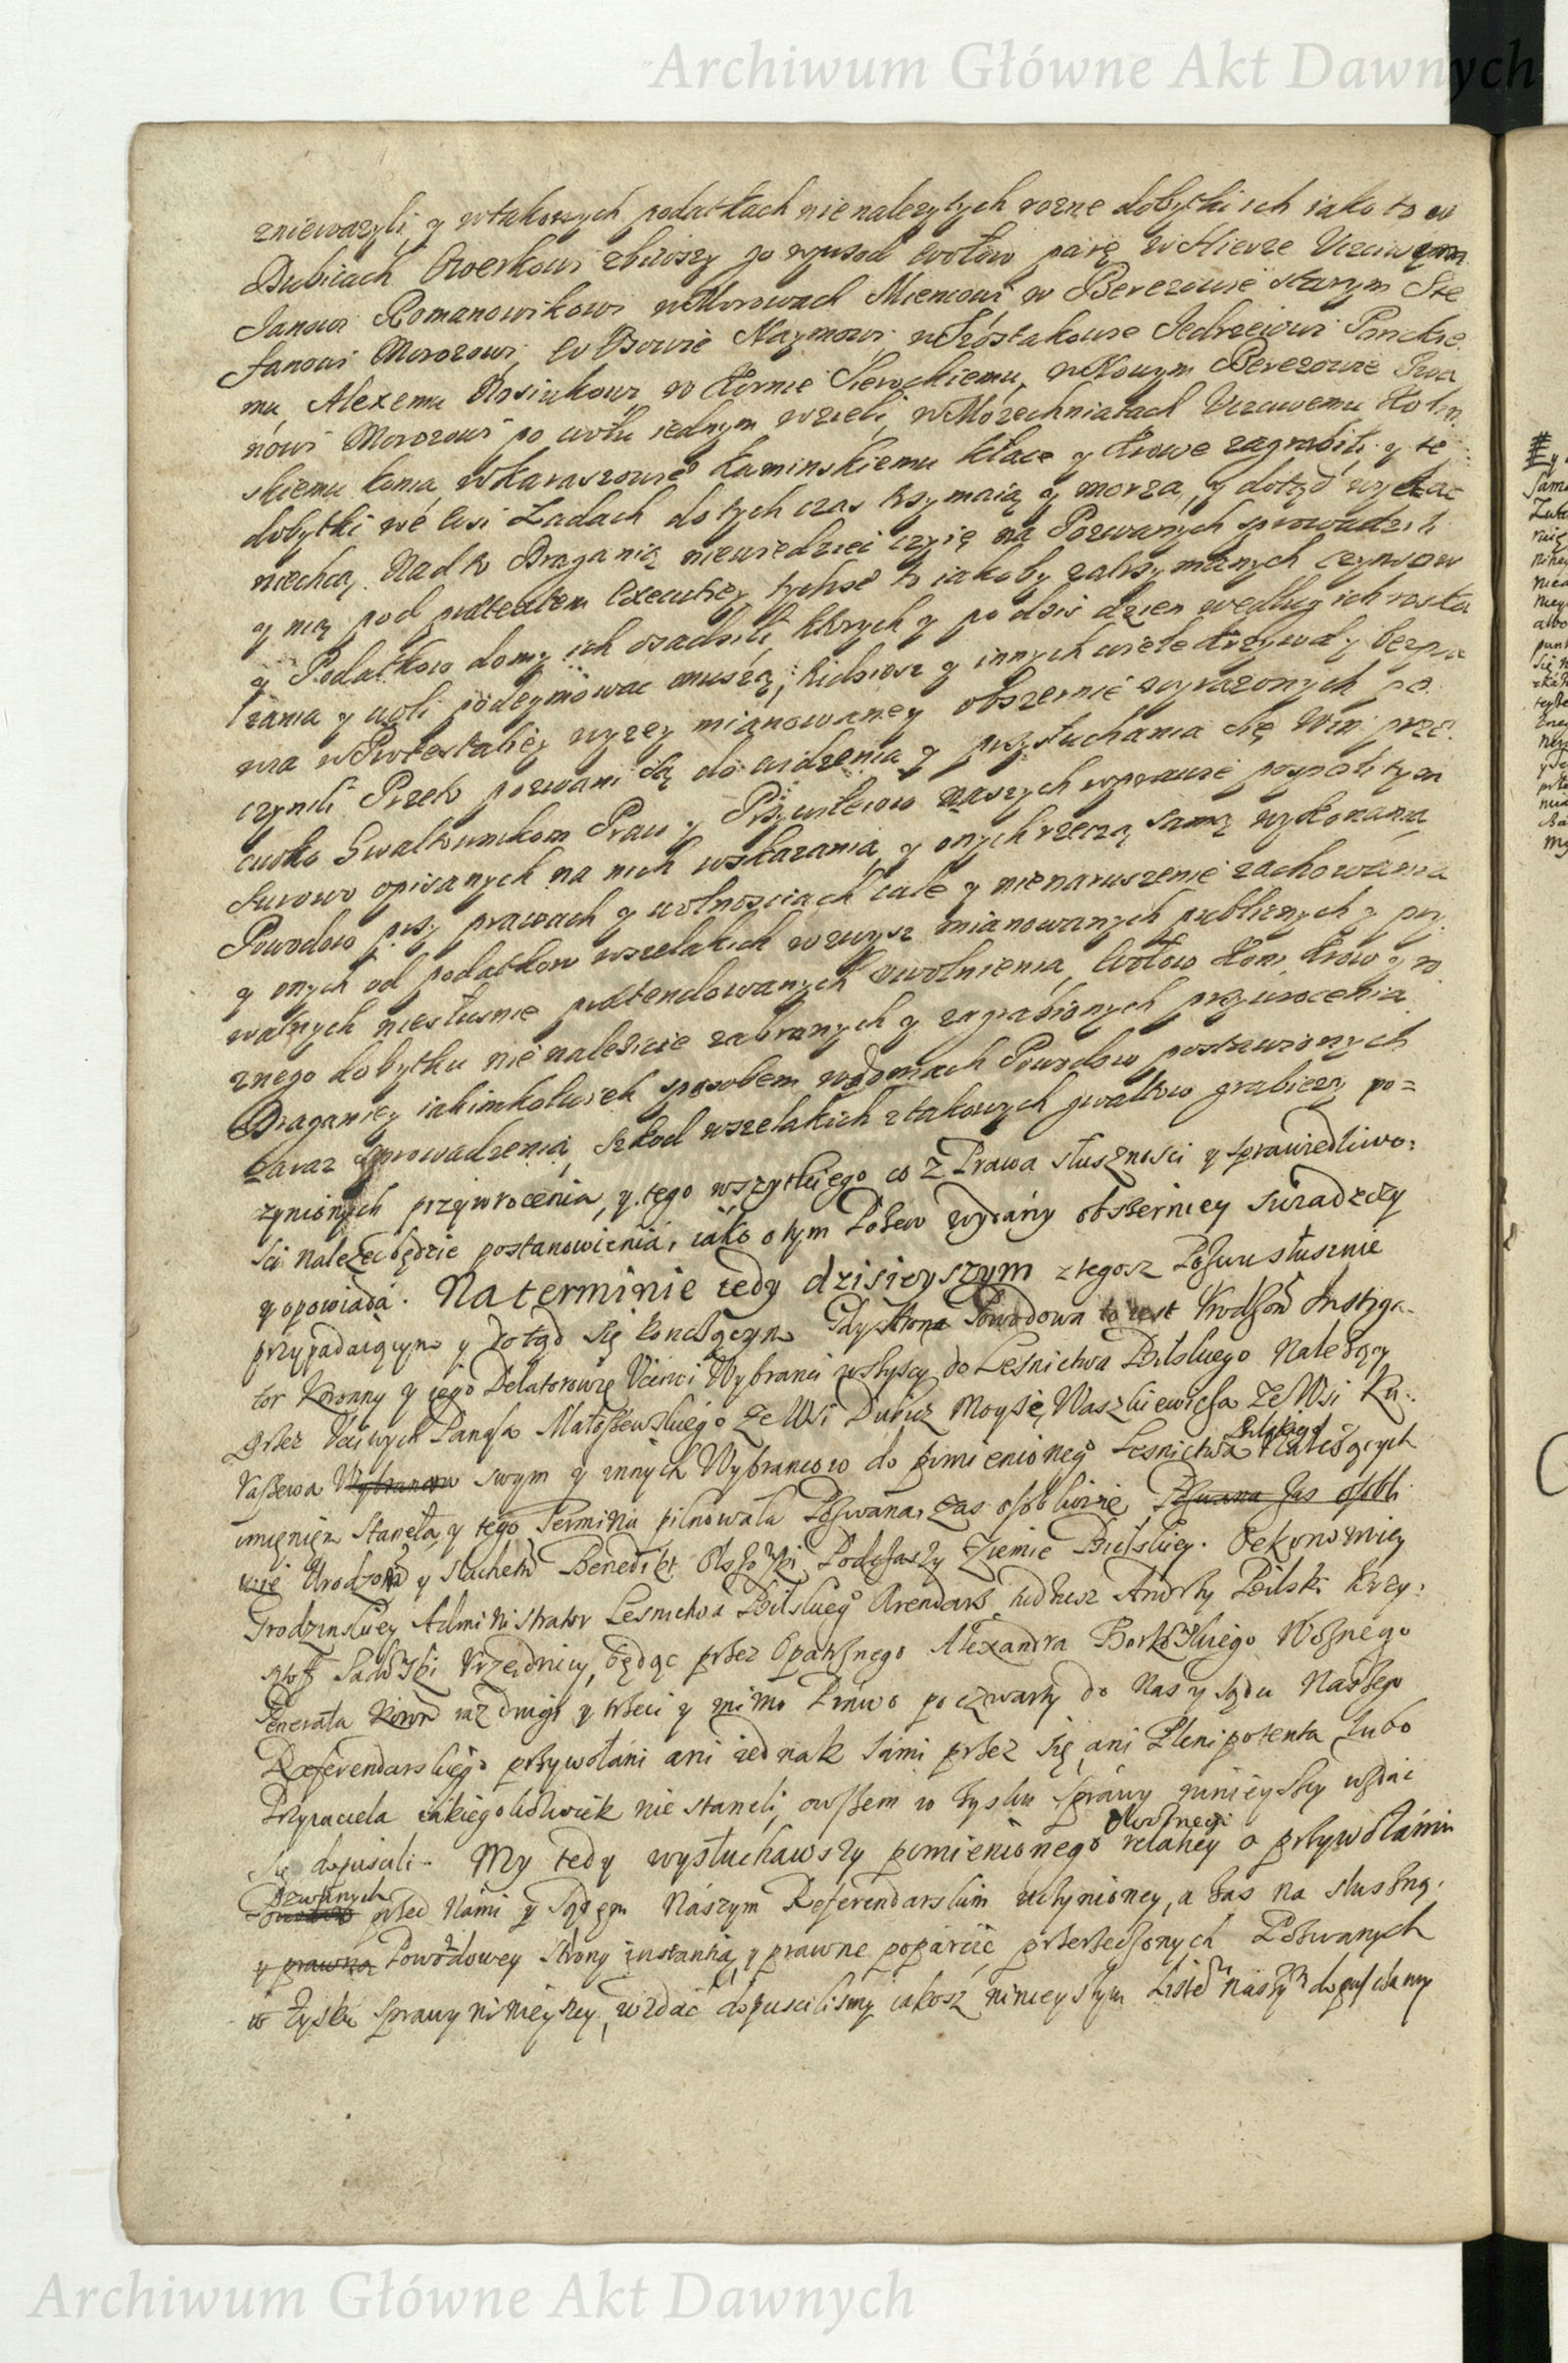 Archiwum Główne Akt Dawnych
zniewazyli, y wtakowych podatkach nienalezytych rozne dobytki ich iako to w
Dubicach Owerkowi zbiwszy go wpusod wołow parę w Hierze Uczciwym
Janowi Romanowikowi w Morowach Miencowi w Berezowie starym Ste
fanowi Morozowi, w Osowie Naymowi, w Szostakowie Jedrzeiowi
mu, Alexemu Kosiukowi, w Kornie Sierockiemu, w Nowym Berezowie Iwa
nowi Morozowi po wołu iednym wzieli, w Morzechniatach Uczciwemu
skiemu konia, w Karaszowie Kaminskiemu kłacę y krowę zagrabili y te
dobytki we wsi Ladach do tych czas trzymaią y morzą, y dotąd wydac
niechcą. Nad to Draganią niewiedziec czyię na Pozwanych sprowadzili
y nią pod praetextem Executiey tychże to iakoby zatrzymanych czynszow
y Podatkow domy ich osadzili, ktorych y po dzis dzien według ich roska
zania y woli podeymowac muszą; kidziesz y innych wiele krzywd y bezpra
wia w Protestatiey wyzey mianowaney obszernie wyrazonych po
czynili Przeto pozwani są do widzenia y przysłuchania się Win prze
ciwko Gwałtownikom Praw y Przywileiow naszych w prawie pospolitym
surowo opisanych na nich wskazania, y onych rzeczą samą wykonania
Powodow przy prawach y wolnosciach cale y nienaruszenie zachowania
y onych od podatkow wszelakich wzwysz mianowanych publicznych y pry
watnych niesłusznie praetendowanych uwolnienia, wołow koni krow y ro
znego dobytku nienalezicie zabranych y zagrabionych przywrocenia
Draganiey iakimkolwiek sposobem w domach Powodow postawionych
zaraz sprowadzenia, szkod wszelakich z takowych gwałtow grabiezy po=
czynionych przywrocenia, y tego wszytkiego co z Prawa słusznosci y sprawiedliwo:
sci nalezec będzie postanowienia, iako o tym Pozew wydany obszerniey swiadczy
y opowiada. Na terminie tedy dzisieyszym z tegosz Pozwu słusznie
przypadaiącym y dotąd się Gdy strona Powodowa to iest Urodzony Instiga-
tor Koronny y iego Delatorowie Ucciwi Wybrancy wszyscy do Lesnictwa Bilskiego Nalezący
przez Ucciwych Panasa Matoszewskiego ze Wsi Dubicz Moysie, Waszkiewicza ze Wsi Ku:
raszewa Wybrancow swym y innych Wybrancow do pomienionego Lesnictwa Bilskiego Nalezących
imieniem staneła, y tego Terminu pilnowała Pozwana, zas osobliwie, Pozwana zas osobli
wie Urodzony y Szlachetny Benedikt Podczaszy Ziemie Bielskiey. Oekonomiey
Grodzinskiey Administrator Lesnictwa Bilskiego Arendarz tudziesz Andrzy Bilski Krzy:
sztof Sadowski Urzędnicy, będąc przez Opatrznego Alexandra Borkowskiego Woznego
Generała Koronnego raz drugi y trzeci y mimo Prawo po czwarty do Nas y sądu Naszego
Referendarskiego przywołani ani iednak sami przez się, ani Plenipotenta, lubo
Przyiaciela iakiegokolwiek nie staneli, owszem w zysku sprawy ninieyszy wzdac
się dopuscili. My tedy wysłuchawszy pomienionego Woznego relatiey o przywołaniu
Pozwanych przed Nami y Sądem Naszym Referendarskim uczynioney, a zas na słuszną,
y prawną Powodowey strony instantią, y prawne poparcie, przerzeczonych Pozwanych
w Zysku sprawy ninieyszy, wzdać dopuscilismy iakosz ninieyszym Listem naszym dopuszczamy
Archiwum Główne Akt Dawnych